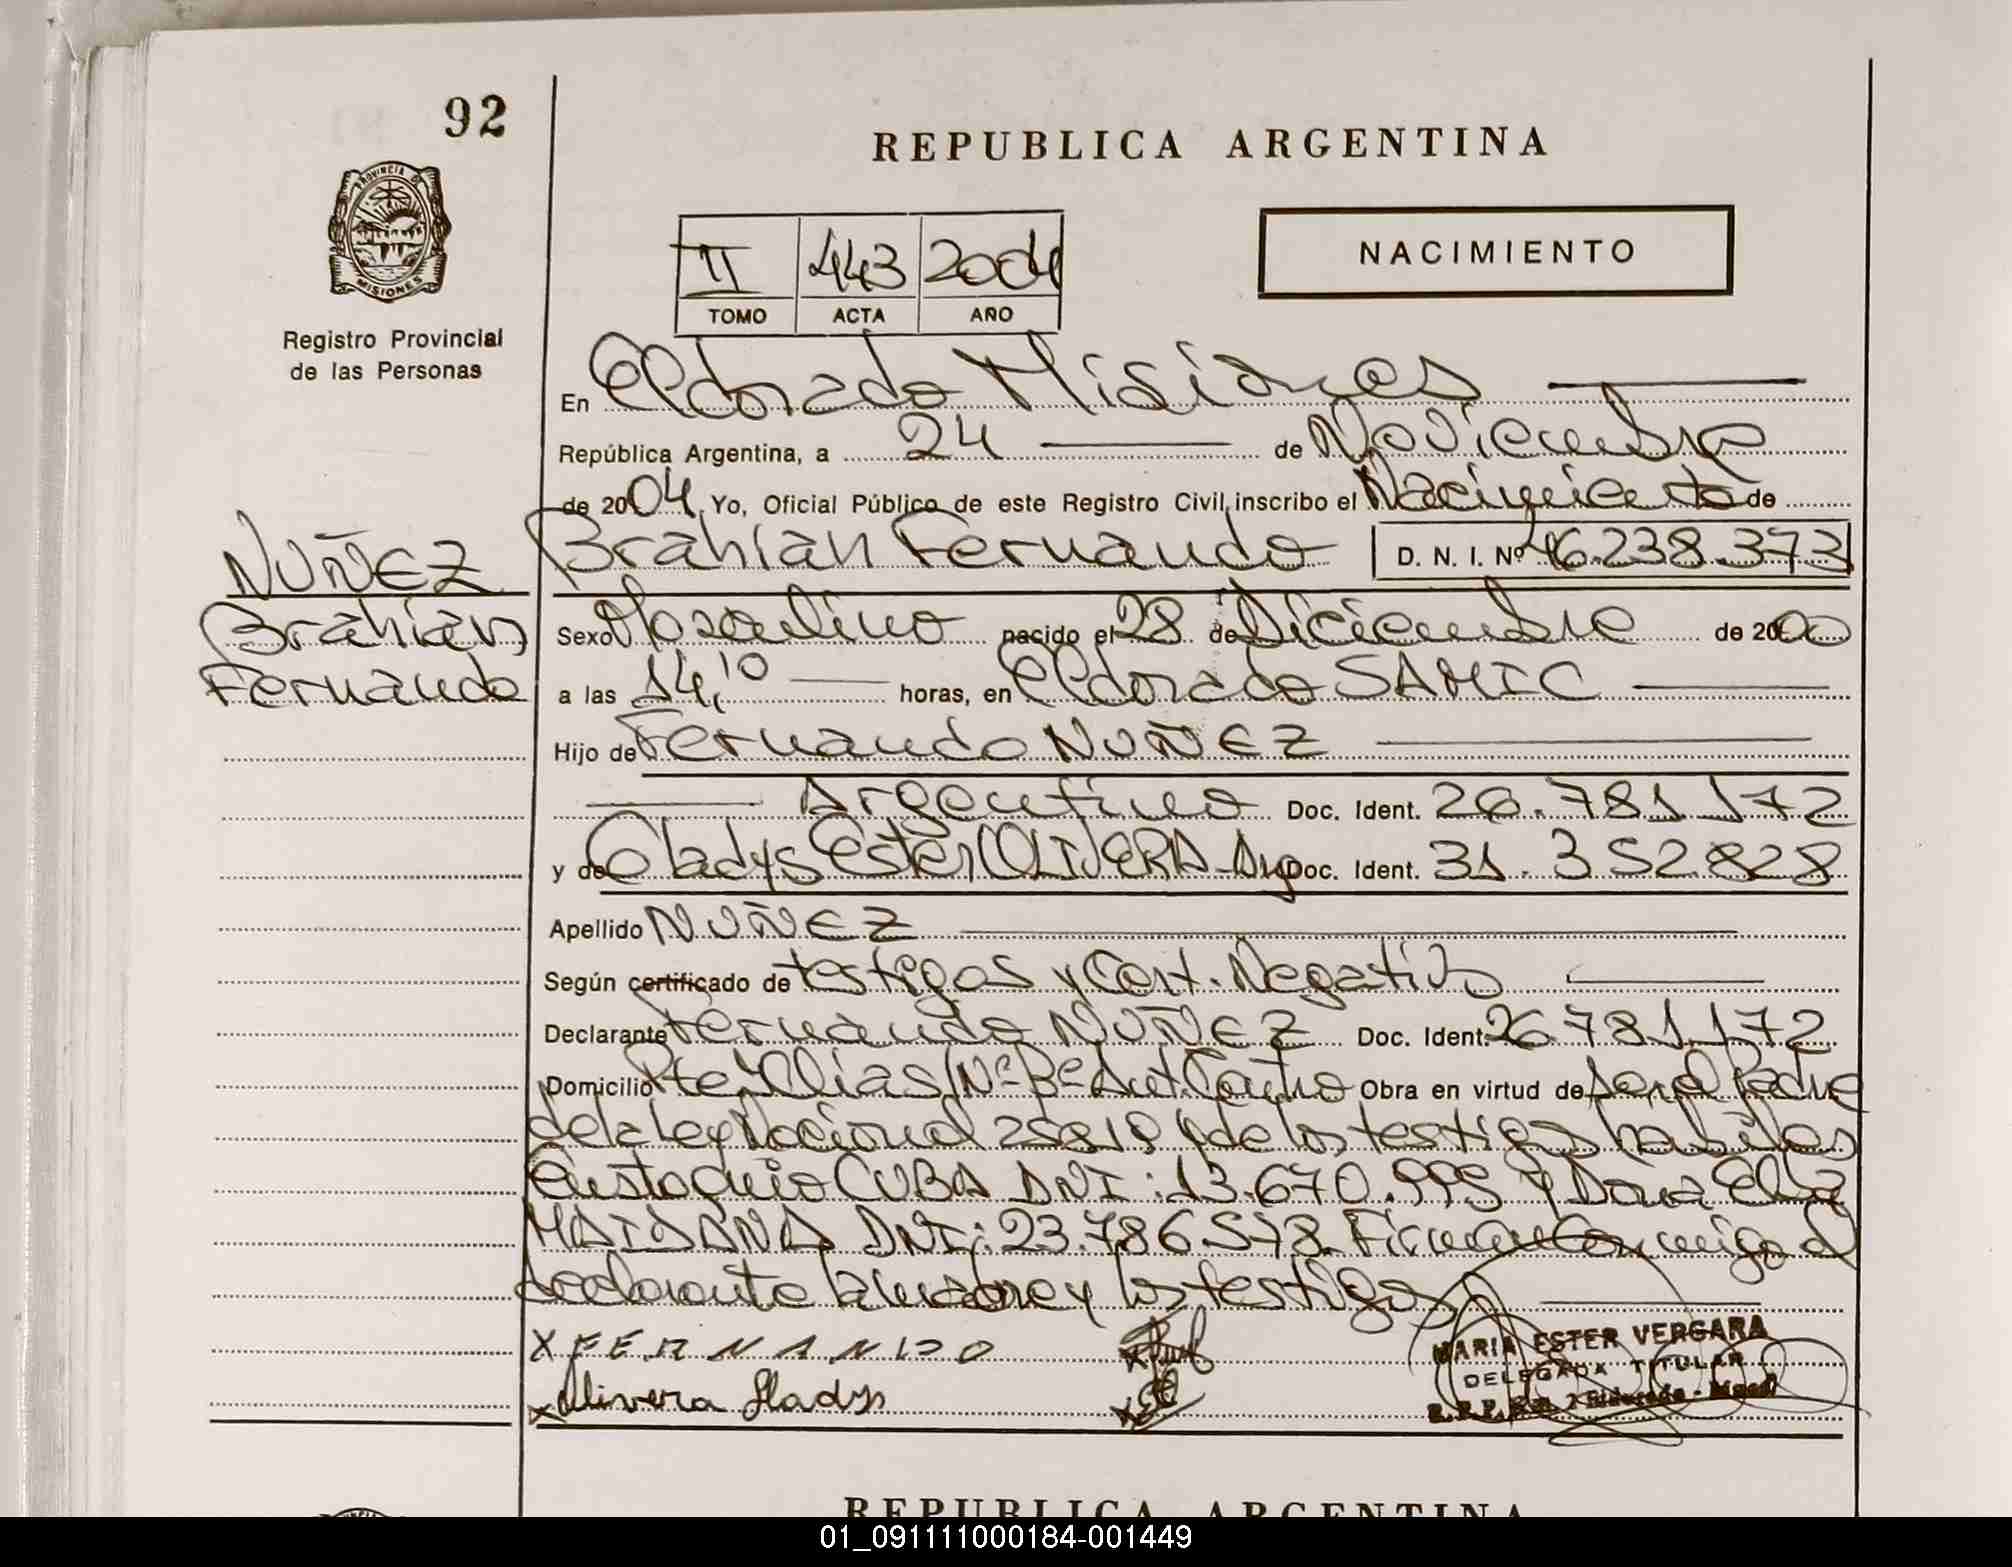 92
REPUBLICA ARGENTINA
PROVINCIA DE
MISIONES
II 443 2004
TOMO ACTA AÑO
NACIMIENTO
Registro Provincial
de las Personas
En Eldorado Misiones
República Argentina, a 24 de Noviembre
de 2004 Yo, Oficial Público de este Registro Civil, inscribo el Nacimiento de
NUÑEZ
Brahian
Fernando
Brahian Fernando D. N. I. Nº 46.238.373
Sexo Masculino nacido el 28 de Diciembre de 2000
a las 14,10 horas, en Eldorado SAMIC
Hijo de Fernando NUÑEZ
Argentino Doc. Ident. 26.781.172
y de Gladys Ester OLIVERA Arg Doc. Ident. 31.352.828
Apellido NUÑEZ
Según certificado de testigos y Cert. Negativo
Declarante Fernando NUÑEZ Doc. Ident. 26.781.172
Domicilio Pte Illia S/Nº Bº Obra en virtud de ser el Padre
de la Ley Nacional 25819 y de los testigos habiles
Eustaquio CUBA DNI: 13.670.995 y Dona Elba
MAIDANA DNI: 23.786.578. Firman conmigo el
declarante la madre y los testigos
X FERNANDO
x Olivera Gladys
MARIA ESTER VERGARA
DELEGADA TITULAR
REPUBLICA ARGENTINA
01_091111000184-001449